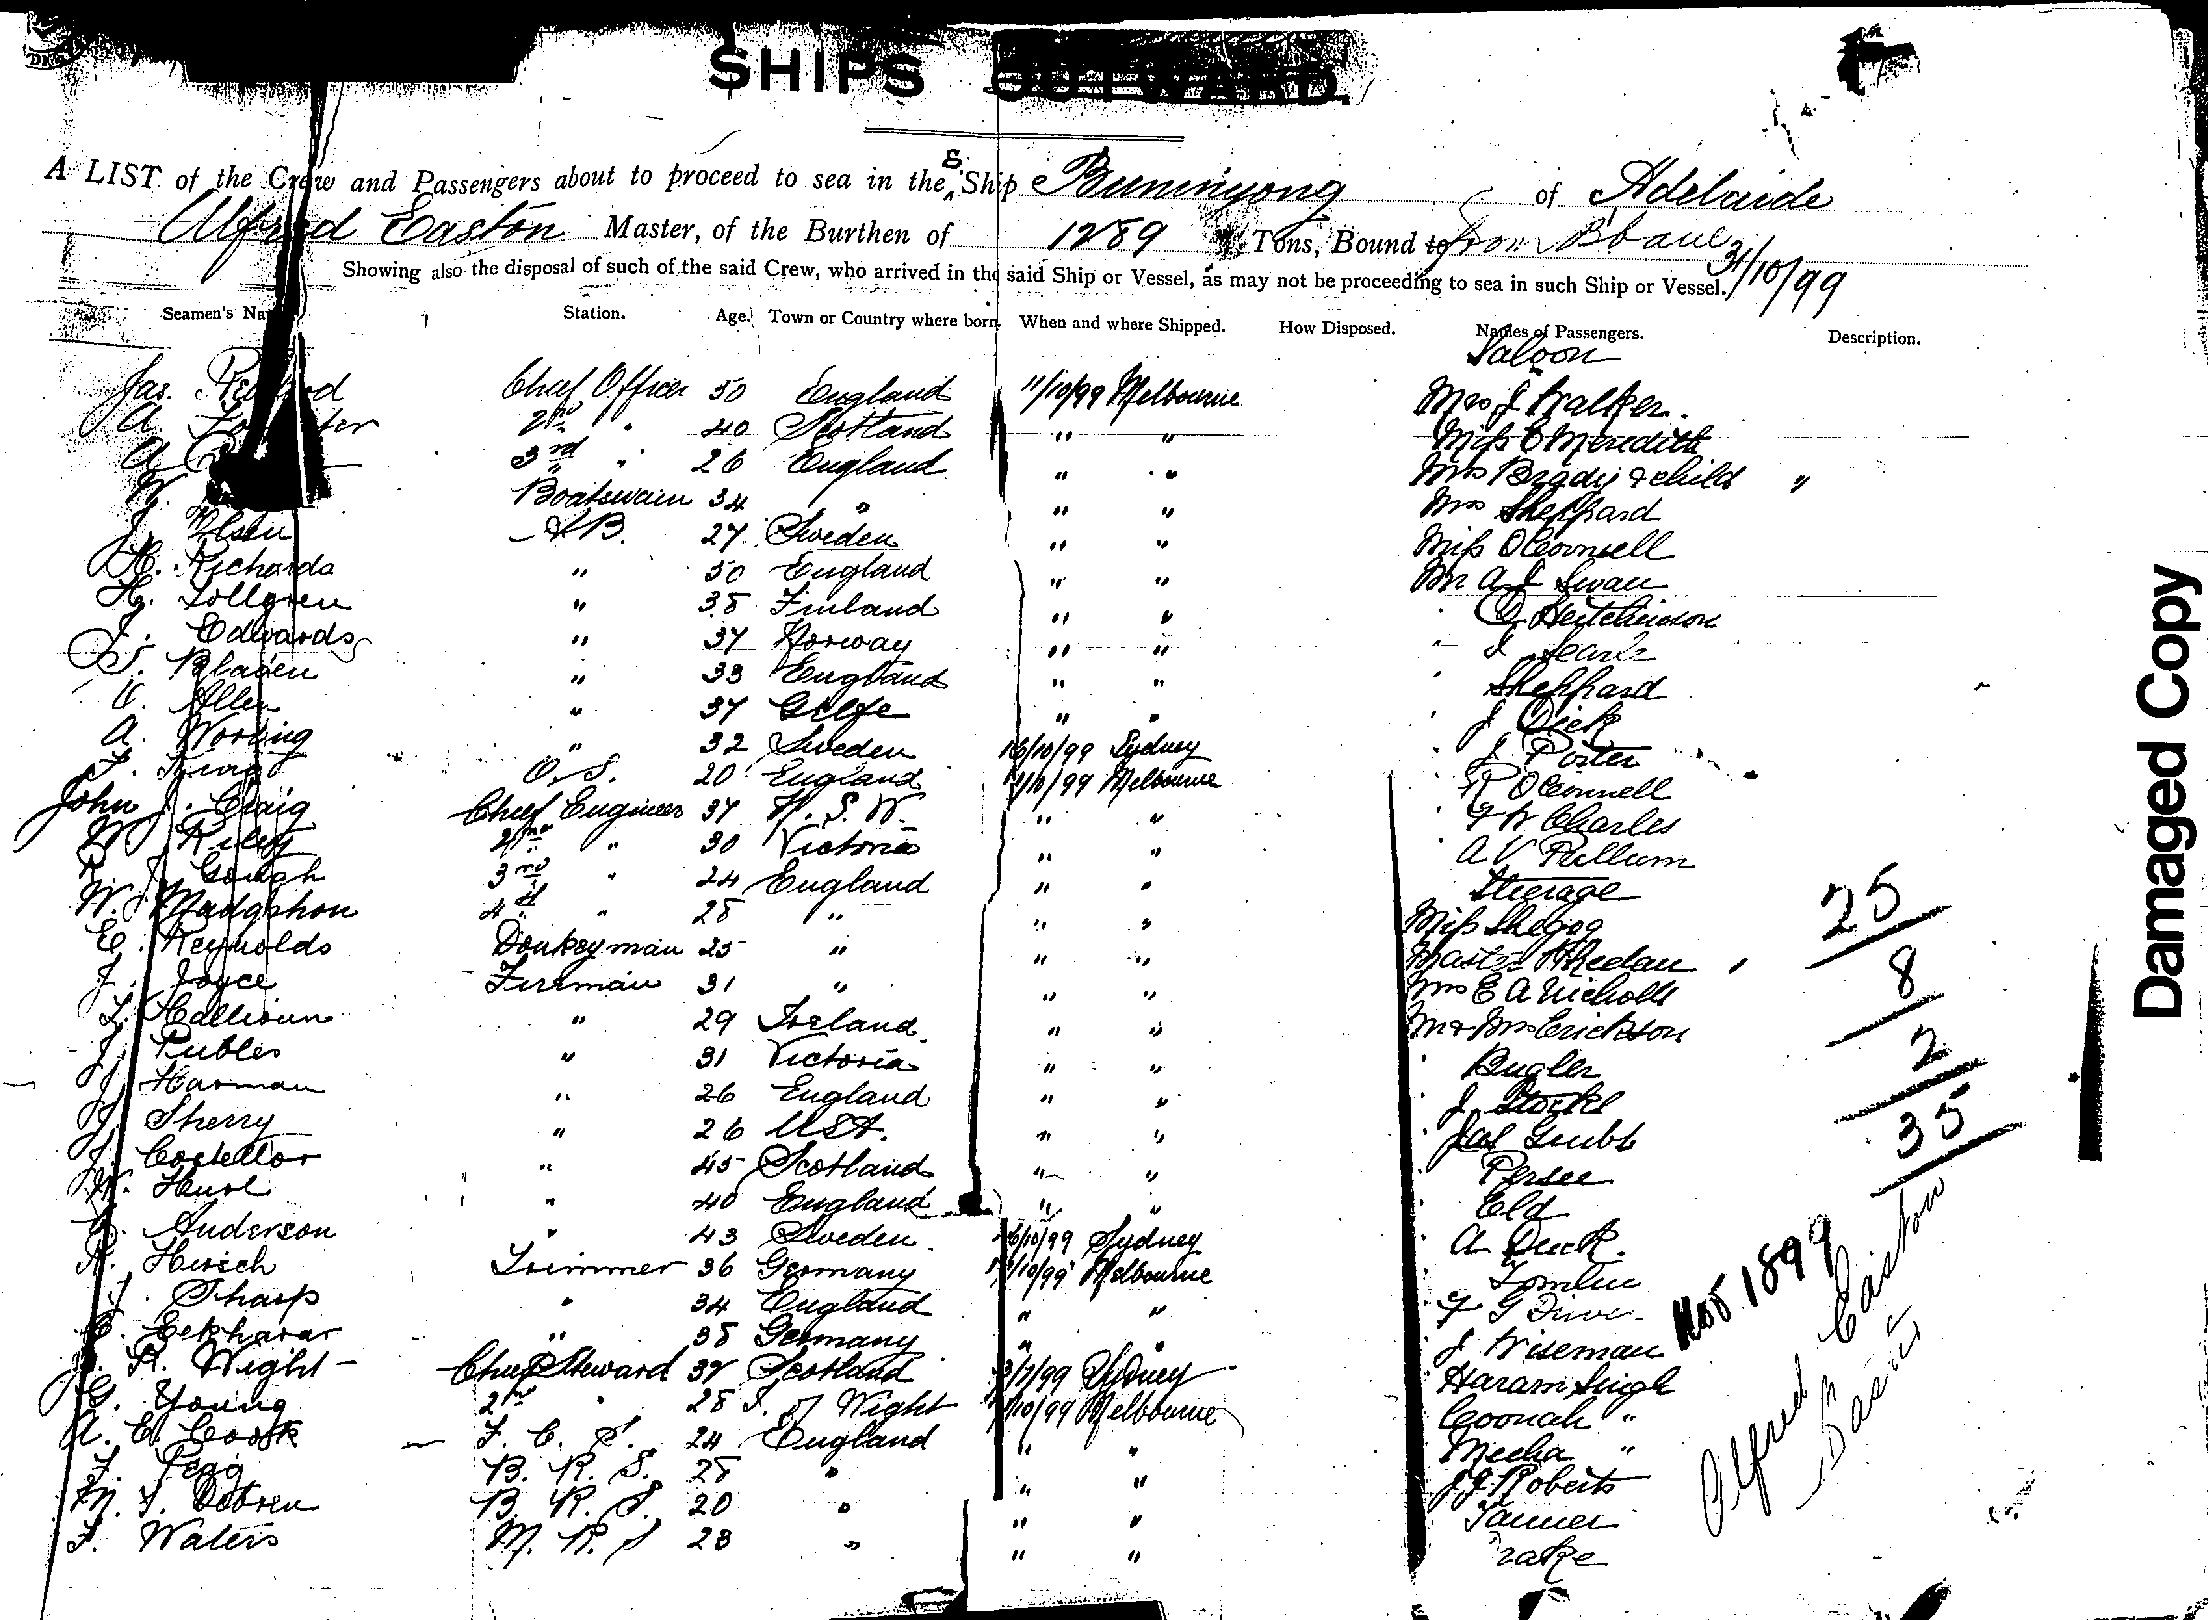 SHIPS OUTWARD.
A LIST of the Crew and Passengers about to proceed to sea in the S. Ship Buninyong of Adelaide
Alfred Easton Master, of the Burthen of 1289 Tons, Bound to from Bbane 31/10/99
Showing also the disposal of such of the said Crew, who arrived in the said Ship or Vessel, as may not be proceeding to sea in such Ship or Vessel.
Seamen's Na Station. Age. Town or Country where born. When and where Shipped. How Disposed. Names of Passengers. Description.
Saloon
Jas. Chief Officer 50 England 11/10/99 Melbourne Mrs J Walker.
A 2nd " 40 Scotland " " Miss E Meredith
A 3rd " 26 England " " Mrs Brady & child "
W. Boatswain 34 " " " Mrs Sheppard
J. Olsen A.B. 27 Sweden " " Miss OConnell
H. Richards " 50 England " " Mr A J Swan
Hy. Sollgren " 38 Finland " " " Hutchinson
J. Edwards " 37 Norway " " " J Searle
S. Bladen " 33 England " " " Sheppard
C. Allen " 37 " " " J Dick
A. Worting " 32 Sweden 16/10/99 Sydney " J Porter
F. King O.S. 20 England 11/10/99 Melbourne R OConnell
John J. Craig Chief Engineer 37 N.S.W. " " " F W Charles
W. Riley 2nd " 30 Victoria " " A V Pullum
R. J. Gough 3rd " 24 England " " Steerage
W. Madgshon 4th " 28 " " " Miss Shegog
E. Reynolds Donkeyman 25 " " " Master Phedan "
J. Joyce Fireman 31 " " " Mrs E A Nicholls
Calhoun " 29 Ireland " " Mr & Mrs Erickson
J. Publes " 31 Victoria " " " Bugler
J. Harman " 26 England " " " J Stockel
J. Sherry " 26 USA. " " Jas Grubb
J. Costellor " 45 Scotland " " " Persee
W. Hurl " 40 England " " " Eld
Anderson " 43 Sweden 16/10/99 Sydney " A Duck.
Hirsch Trimmer 36 Germany 11/10/99 Melbourne " Tomlin
J. Sharp " 34 England " " " F G
Eckharar " 38 Germany " " " J Wiseman
R. Wight Chief Steward 37 Scotland 3/7/99 Sydney Haram Singh
G. Young 2nd " 28 I. of Wight 11/10/99 Melbourne Coonah "
A. E. Cook F. C. S. 24 England " " Mecha "
F. Pegg B. R. S. 28 " " " J J Roberts
M. J. Obrien B. R. S. 20 " " " Tanner
F. Waters M. R. S 23 " " "
25
8
2
35
Nov 1899
Alfred Easton
Damaged Copy